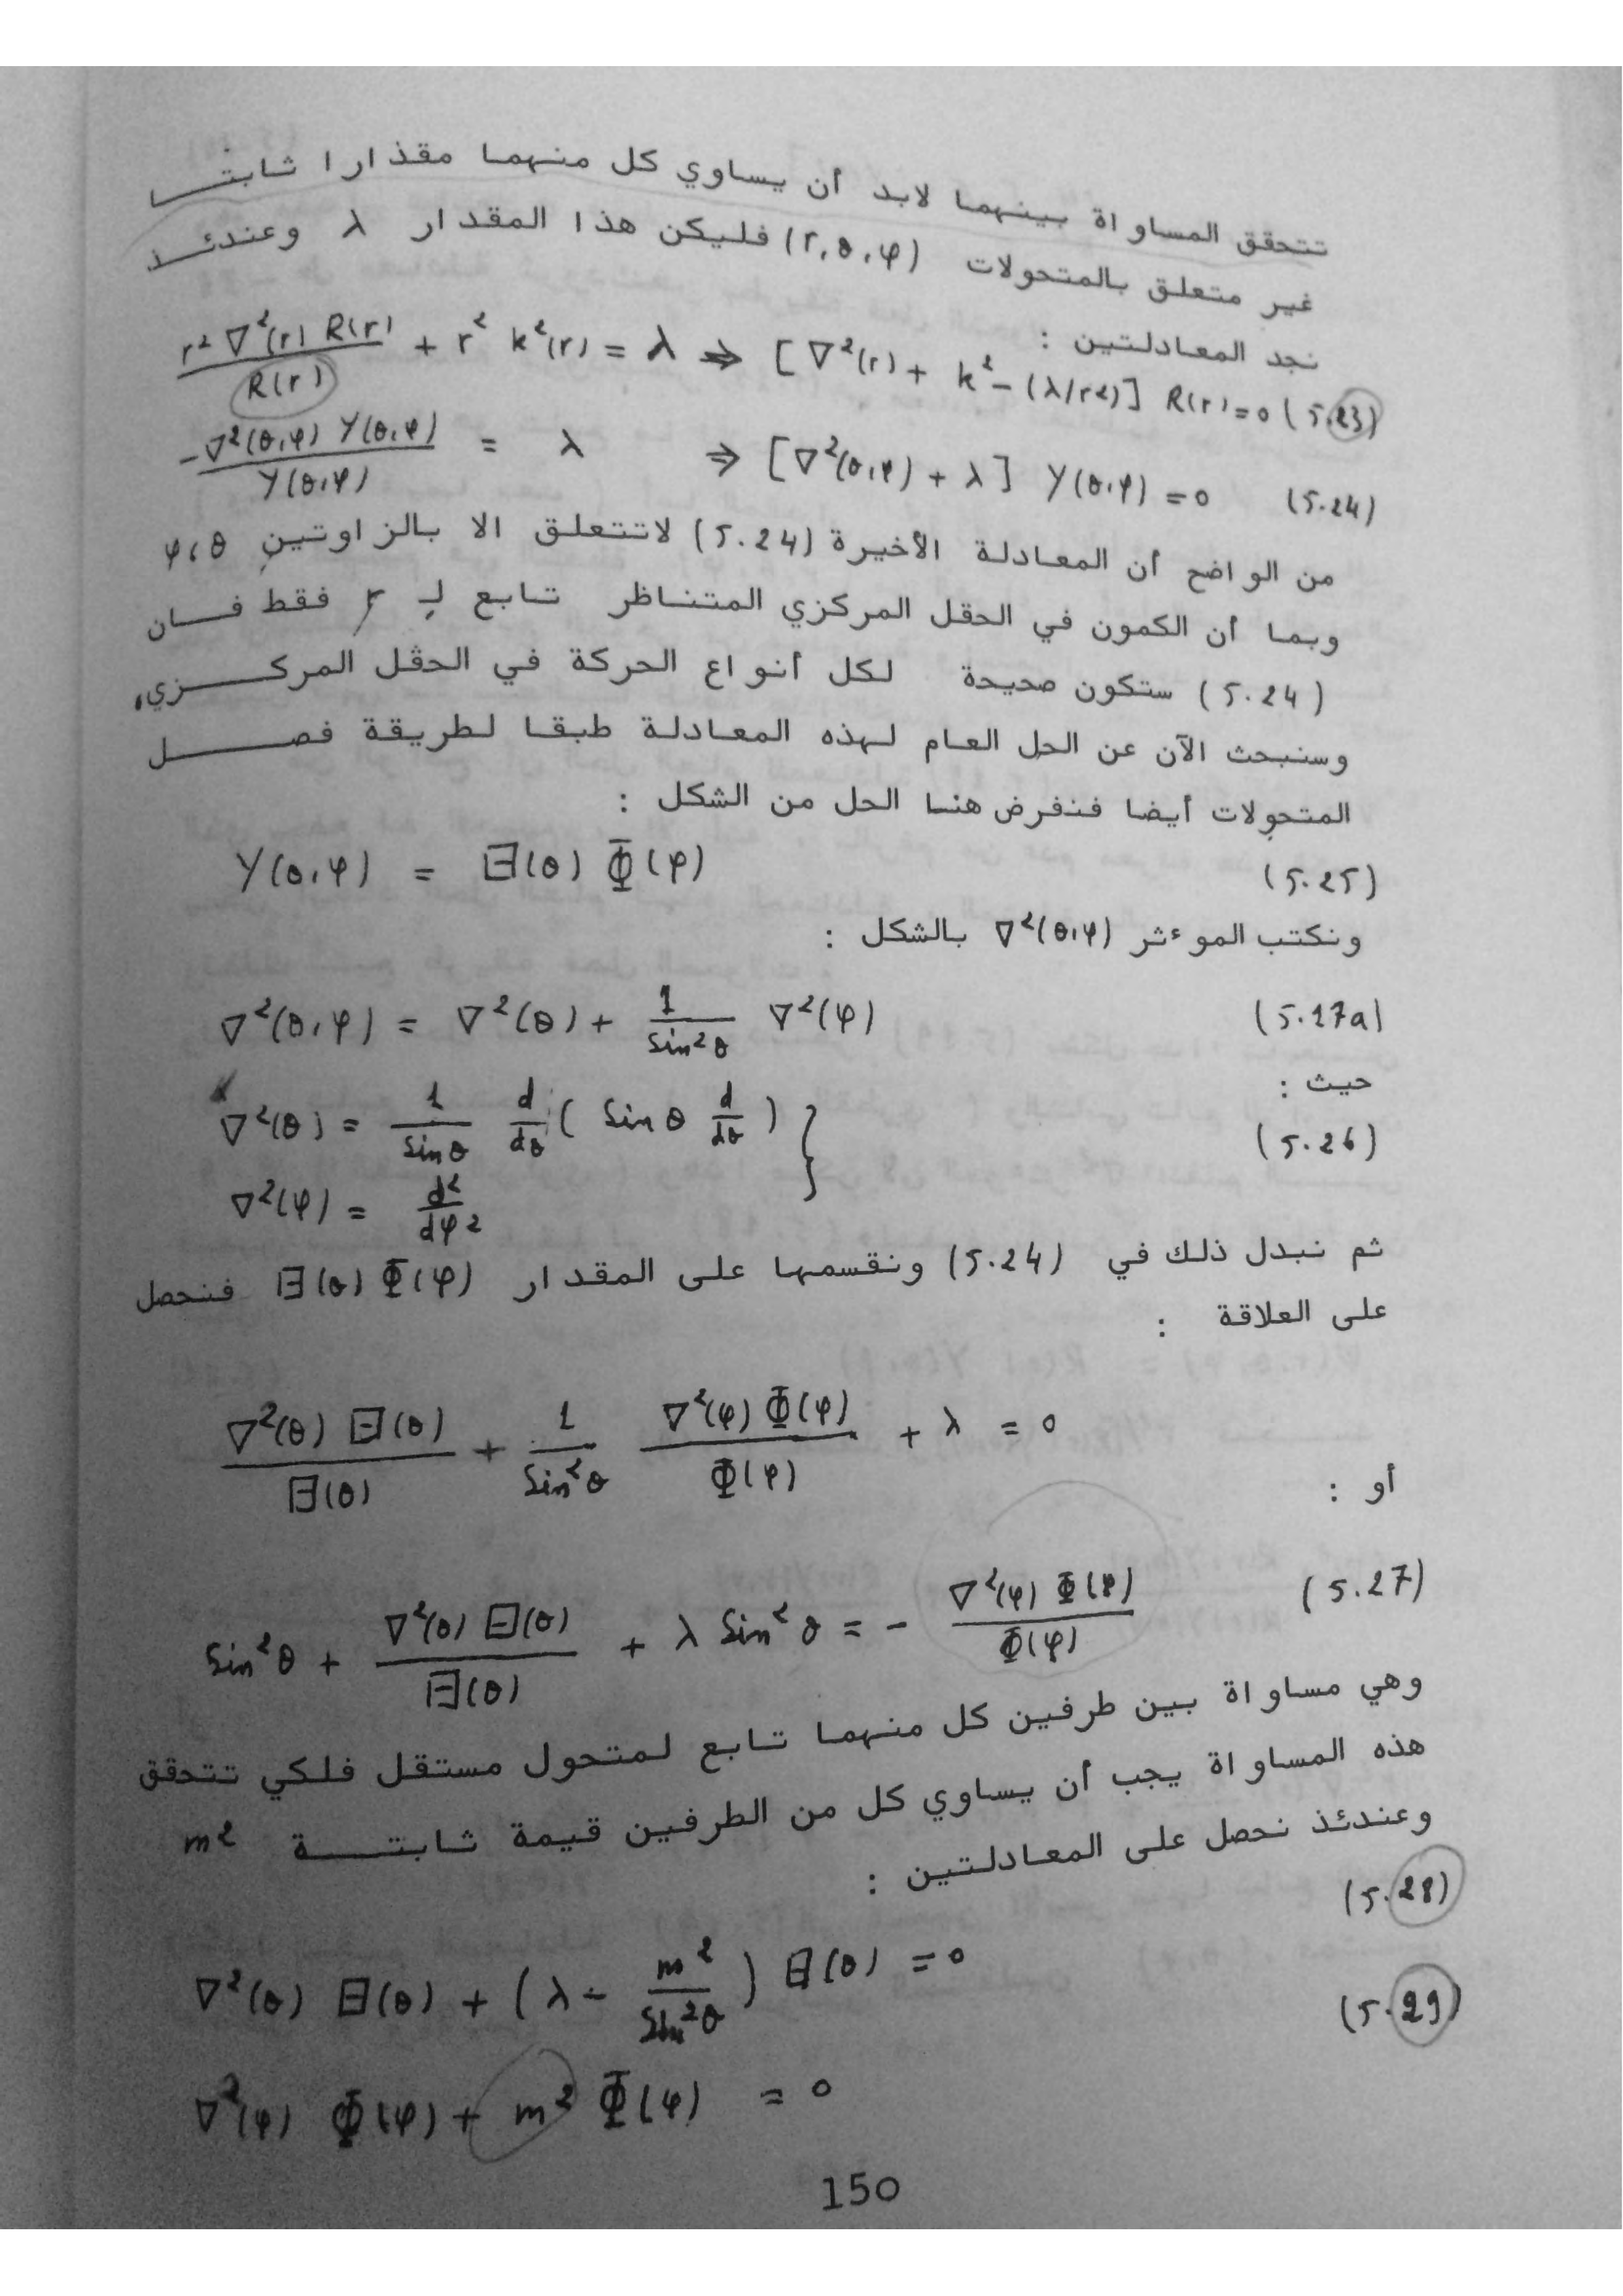 تتحقق المساواة بينهما لابد أن يساوي كل منهما مقذارا ثابتا
غير متعلق بالمتحولات (r,θ,φ) فليكن هذا المقدار λ وعندئذ
نجد المعادلتين :
r² ∇²(r) R(r) / R(r) + r² k²(r) = λ ⇒ [∇²(r) + k² - (λ/r²)] R(r) = 0 (5.23)
-∇²(θ,φ) Y(θ,φ) / Y(θ,φ) = λ ⇒ [∇²(θ,φ) + λ] Y(θ,φ) = 0 (5.24)
من الواضح أن المعادلة الأخيرة (5.24) لاتتعلق الا بالزاوتين θ،φ
وبما أن الكمون في الحقل المركزي المتناظر تابع لـ r فقط فان
(5.24) ستكون صحيحة لكل أنواع الحركة في الحقل المركزي،
وسنبحث الآن عن الحل العام لهذه المعادلة طبقا لطريقة فصل
المتحولات أيضا فنفرض هنا الحل من الشكل :
Y(θ,φ) = Θ(θ) Φ(φ) (5.25)
ونكتب الموءثر ∇²(θ,φ) بالشكل :
∇²(θ,φ) = ∇²(θ) + 1/sin²θ ∇²(φ) (5.27a)
حيث :
∇²(θ) = 1/sinθ d/dθ ( sinθ d/dθ ) } (5.26)
∇²(φ) = d²/dφ²
ثم نبدل ذلك في (5.24) ونقسمها على المقدار Θ(θ) Φ(φ) فنحصل
على العلاقة :
∇²(θ) Θ(θ) / Θ(θ) + 1/sin²θ ∇²(φ) Φ(φ) / Φ(φ) + λ = 0
أو :
sin²θ + ∇²(θ) Θ(θ) / Θ(θ) + λ sin²θ = - ∇²(φ) Φ(φ) / Φ(φ) (5.27)
وهي مساواة بين طرفين كل منهما تابع لمتحول مستقل فلكي تتحقق
هذه المساواة يجب أن يساوي كل من الطرفين قيمة ثابتة m²
وعندئذ نحصل على المعادلتين :
(5.28)
∇²(θ) Θ(θ) + (λ - m²/sin²θ) Θ(θ) = 0
(5.29)
∇²(φ) Φ(φ) + m² Φ(φ) = 0
150